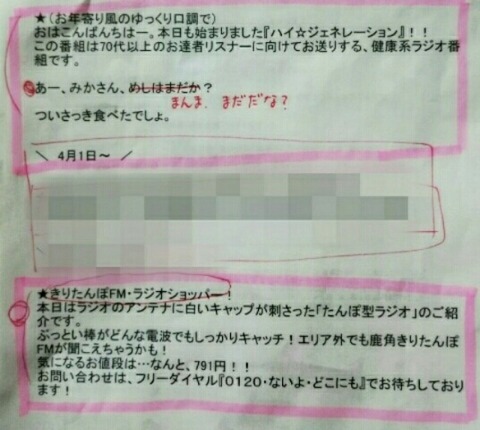 ★(お年寄り風のゆっくり口調で)
おはこんばんちはー。本日も始まりました『ハイ☆ジェネレーション』!!
この番組は70代以上のお達者リスナーに向けてお送りする、健康系ラジオ番
組です。
あー、みかさん、めしはまだか?
まんま、まだだな?
ついさっき食べたでしょ。
＼ 4月1日〜 ／
★きりたんぽFM・ラジオショッパー!
本日はラジオのアンテナに白いキャップが刺さった「たんぽ型ラジオ」のご紹
介です。
ぶっとい棒がどんな電波でもしっかりキャッチ!エリア外でも鹿角きりたんぽ
FMが聞こえちゃうかも!
気になるお値段は…なんと、791円!!
お問い合わせは、フリーダイヤル『0120・ないよ・どこにも』でお待ちしており
ます!